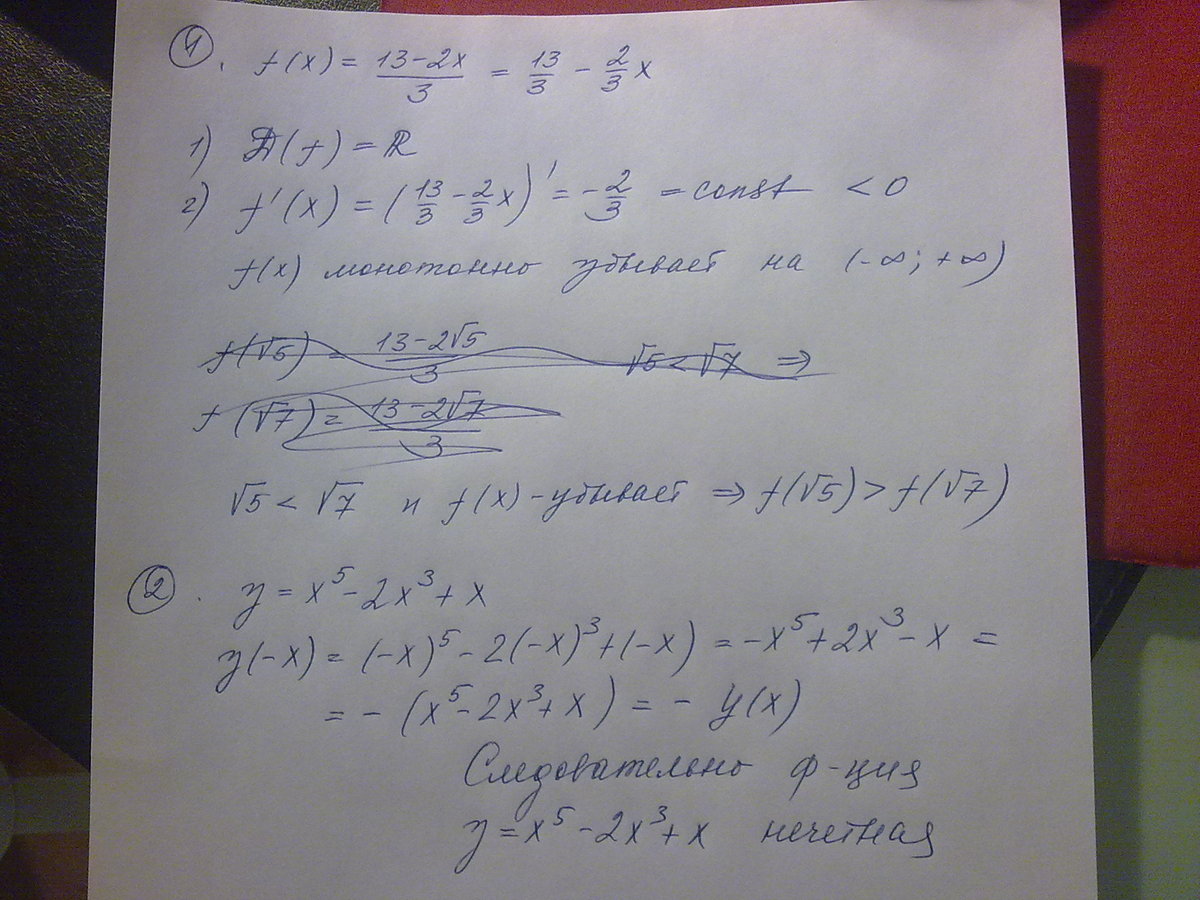 1. f(x) = (13-2x)/3 = 13/3 - 2/3 x
1) D(f) = ℝ
2) f'(x) = (13/3 - 2/3 x)' = -2/3 = const < 0
f(x) монотонно убывает на (-∞; +∞)
f(√5) = (13-2√5)/3 √5 < √7 ⇒
f(√7) = (13-2√7)/3
√5 < √7 и f(x) - убывает ⇒ f(√5) > f(√7)
2. y = x⁵ - 2x³ + x
y(-x) = (-x)⁵ - 2(-x)³ + (-x) = -x⁵ + 2x³ - x =
= - (x⁵ - 2x³ + x) = - y(x)
Следовательно ф-ция
y = x⁵ - 2x³ + x нечетная